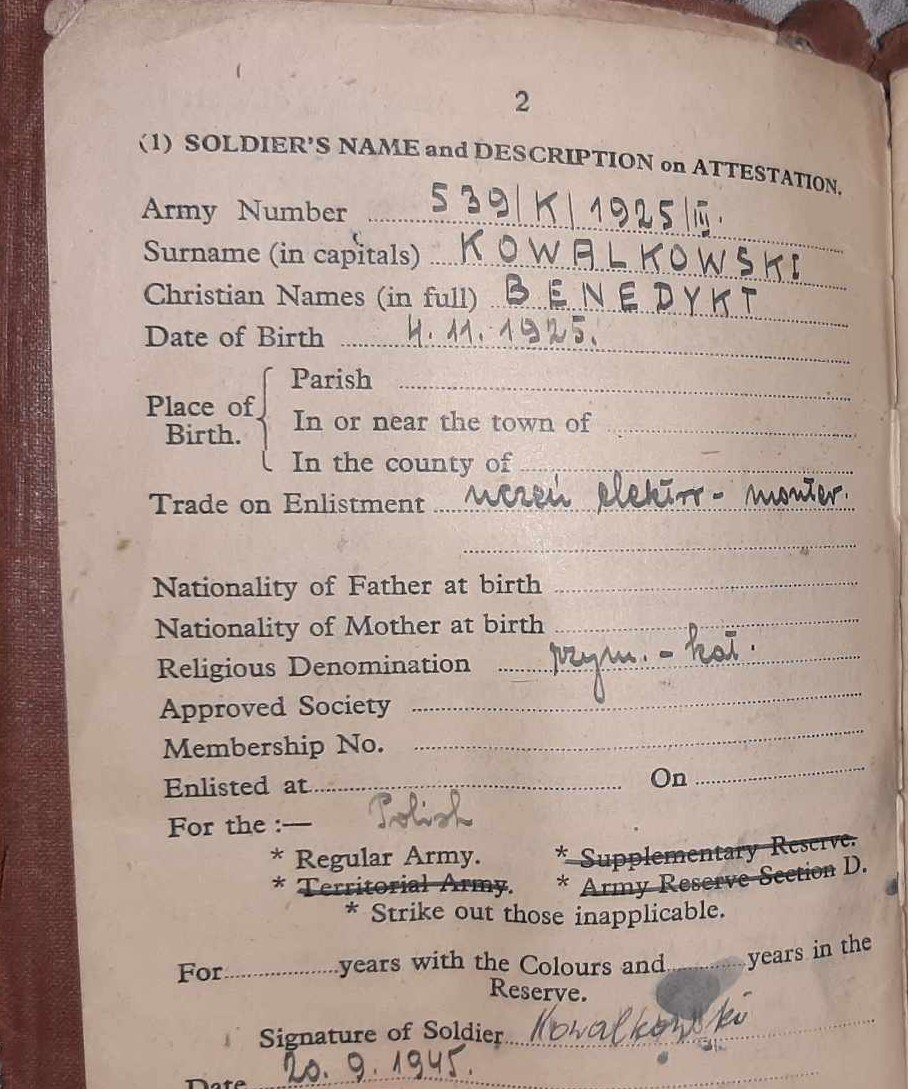 2
(1) SOLDIER'S NAME and DESCRIPTION on ATTESTATION.
Army Number 539/K/1925/III.
Surname (in capitals) KOWALKOWSKI
Christian Names (in full) BENEDYKT
Date of Birth 4.11.1925.
Place of Birth.
Parish
In or near the town of
In the county of
Trade on Enlistment uczeń elektro-monter.
Nationality of Father at birth
Nationality of Mother at birth
Religious Denomination rzym.-kat.
Approved Society
Membership No.
Enlisted at On
For the :— Polish
* Regular Army. * Supplementary Reserve.
* Territorial Army. * Army Reserve Section D.
* Strike out those inapplicable.
For years with the Colours and years in the
Reserve.
Signature of Soldier Kowalkowski
Date 20.9.1945.